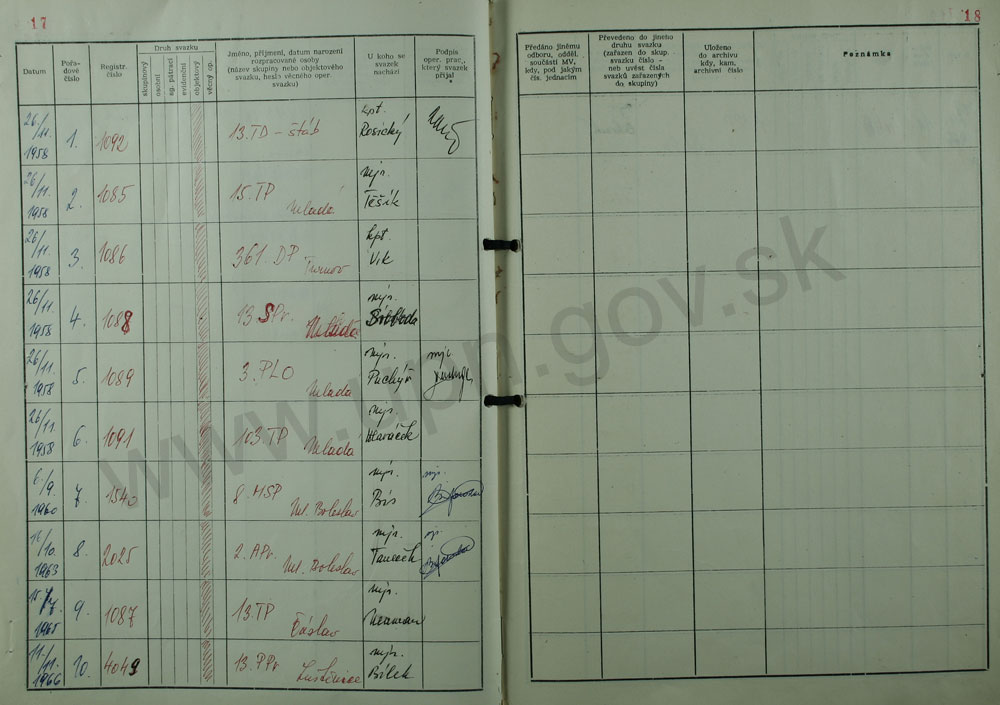 17
Datum
Pořadové číslo
Registr. číslo
Druh svazku
skupinový
osobní
sg. pátrací
evidenční
objektový
věcný op.
Jméno, příjmení, datum narození
rozpracované osoby
(název skupiny nebo objektového
svazku, heslo věcného oper.
svazku)
U koho se
svazek
nachází
Podpis
oper. prac.,
který svazek
přijal
26./11. 1958 1. 1092 13. TD – štáb kpt. Rosický
26/11. 1958 2. 1085 15. TP Mladá mjr. Těšík
26/11. 1958 3. 1086 361. DP Turnov kpt. Vik
26/11. 1958 4. 1088 13 SPr. Mladá mjr.
26/11. 1958 5. 1089 3. PLO Mladá mjr. Puchýř mjr.
26/11. 1958 6. 1091 103. TP Mladá mjr. Hlaváček
6./9. 1960 7. 1540 8. MSP Ml. Boleslav mjr. Bís mjr.
/10. 1963 8. 2025 2. APr. Ml. Boleslav mjr. mjr.
1965 9. 1087 13. TP Čáslav mjr. Neuman
11./11. 1966 10. 4049 13. PPr. Luštěnice mjr. Bílek
18
Předáno jinému
odboru, odděl.
součásti MV,
kdy, pod jakým
čís. jednacím
Převedeno do jiného
druhu svazku
(zařazen do skup.
svazku číslo -
neb uvést čísla
svazků zařazených
do skupiny)
Uloženo
do archivu
kdy, kam,
archivní číslo
Poznámka
www.upn.gov.sk